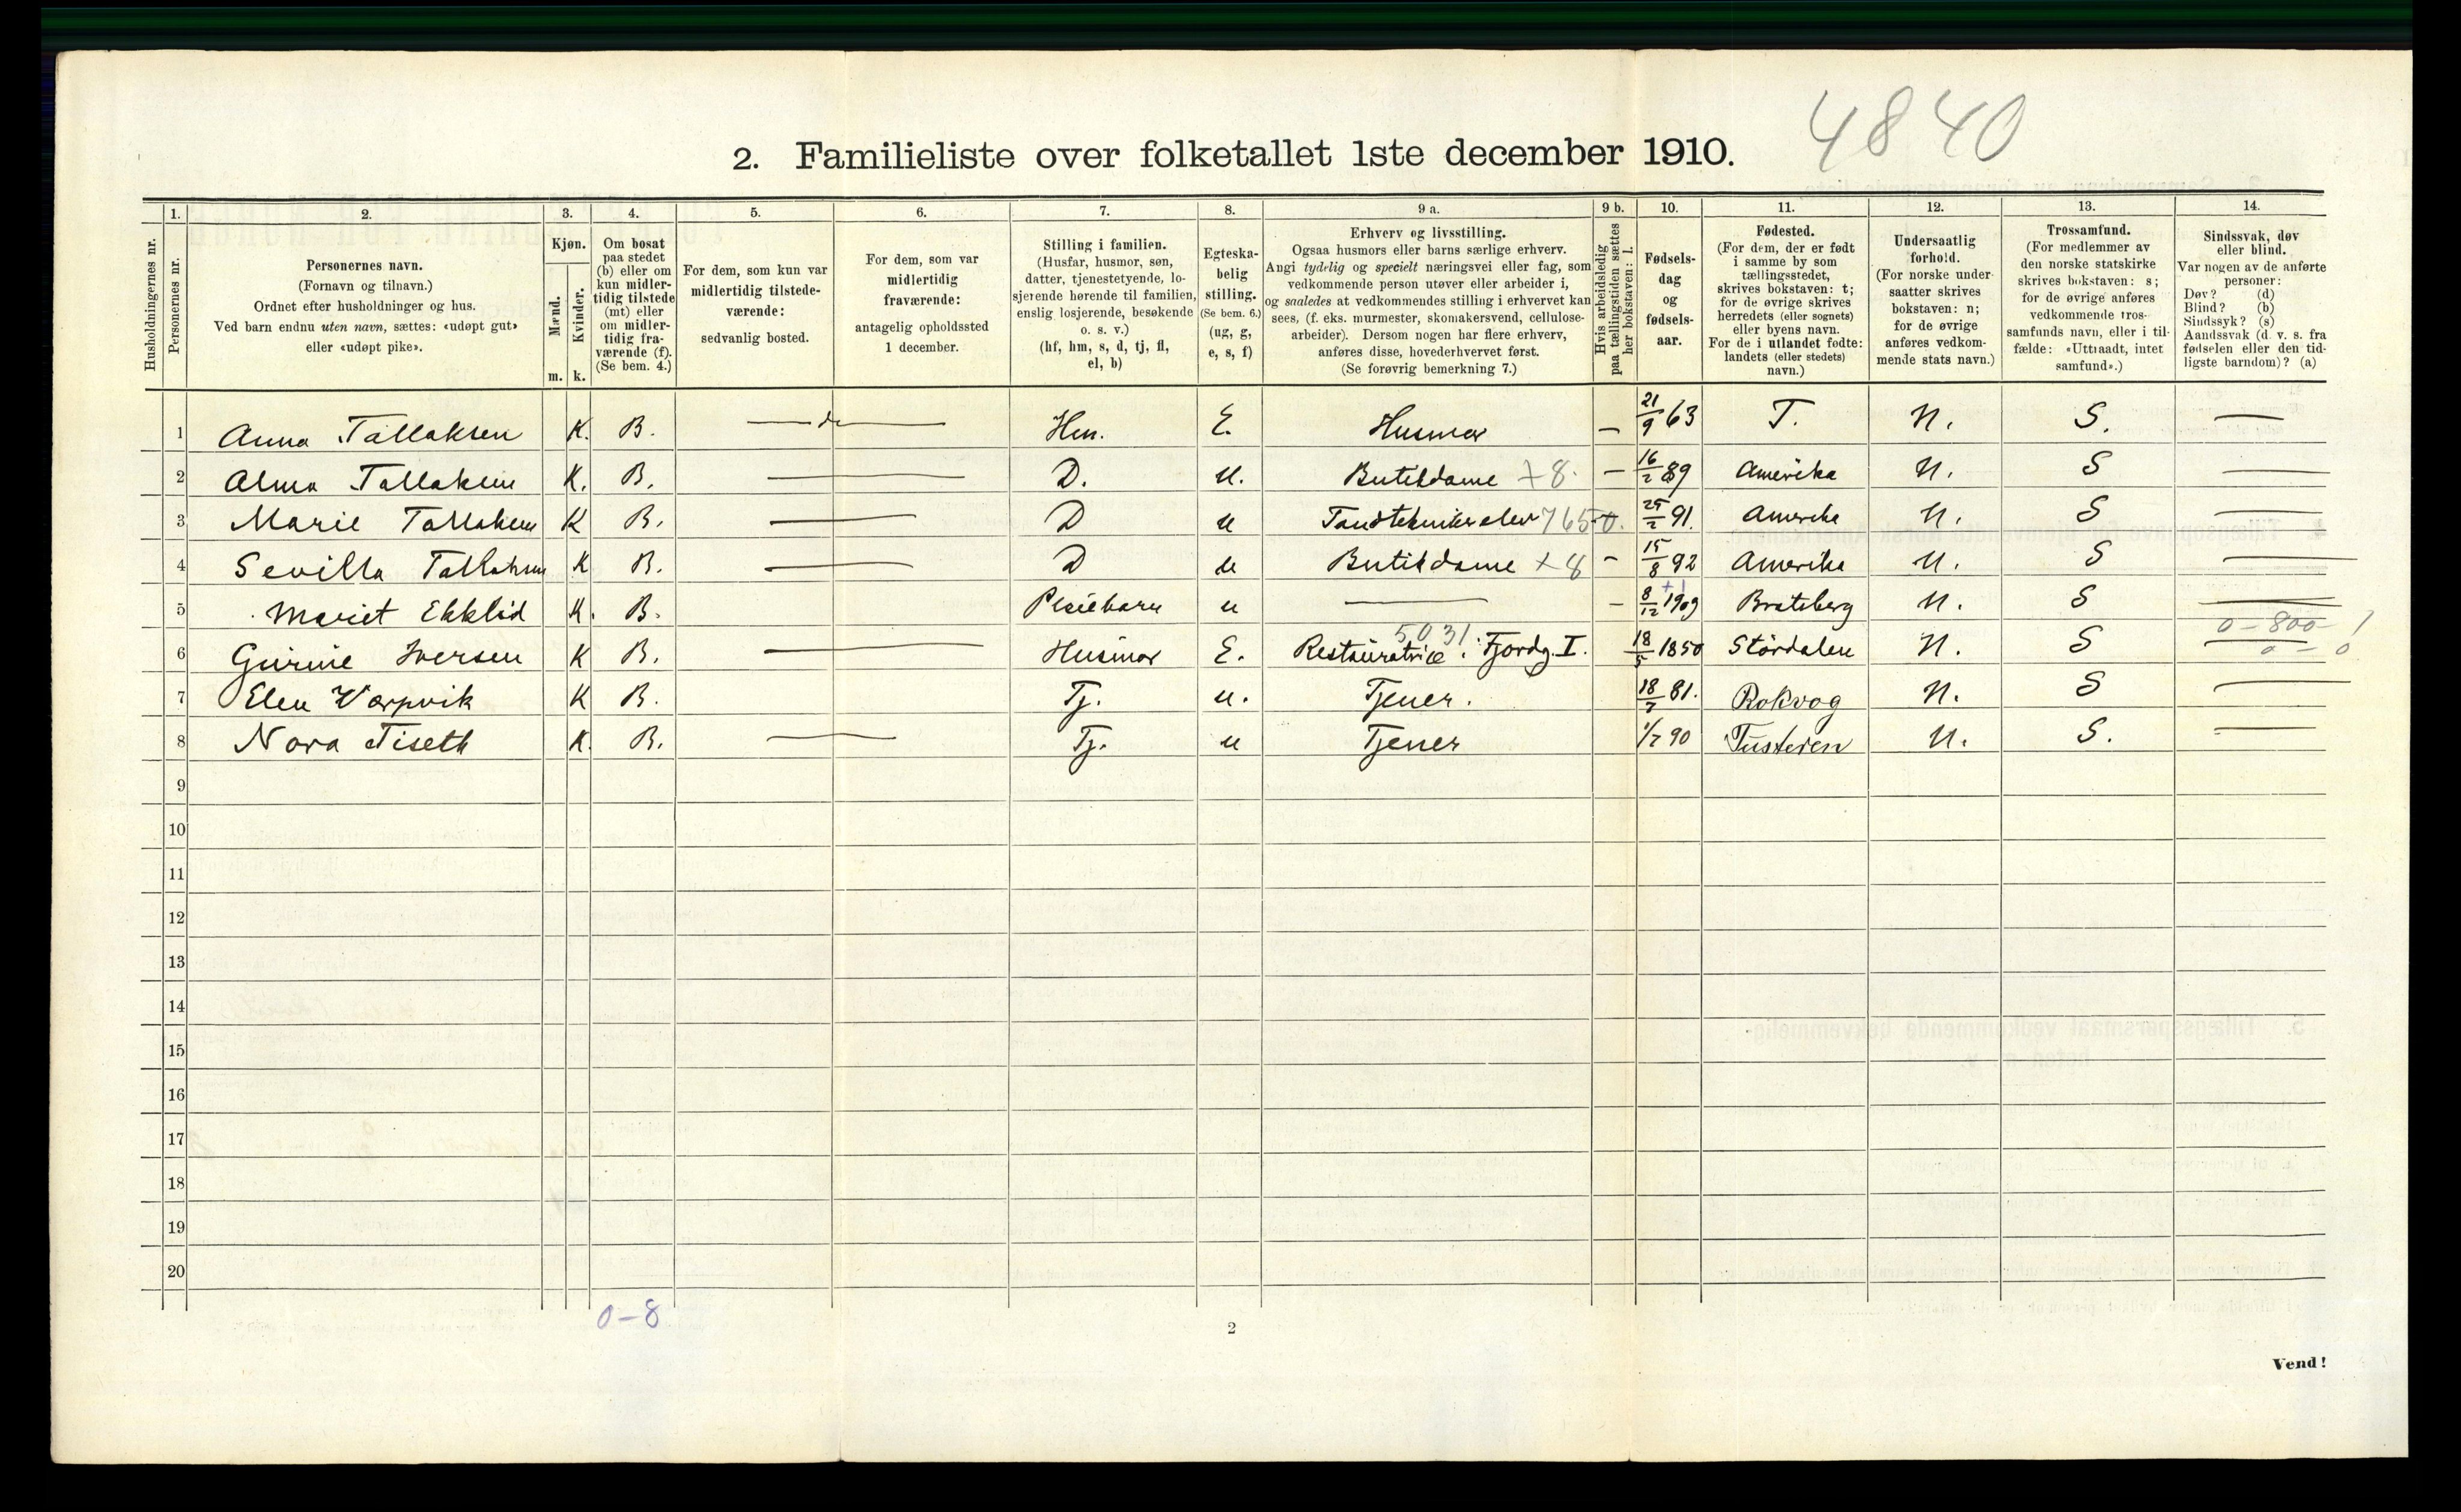 4840
2. Familieliste over folketallet 1ste december 1910.
Husholdningernes nr.
1. 2. 3. 4. 5. 6. 7. 8. 9 a. 9 b. 10. 11. 12. 13. 14.
Personernes nr.
Personernes navn.
(Fornavn og tilnavn.)
Ordnet efter husholdninger og hus.
Ved barn endnu uten navn, sættes: «udøpt gut»
eller «udøpt pike».
Kjøn.
Mænd.
Kvinder.
m. k.
Om bosat
paa stedet
(b) eller om
kun midler-
tidig tilstede
(mt) eller
om midler-
tidig fra-
værende (f).
(Se bem. 4.)
For dem, som kun var
midlertidig tilstede-
værende:
sedvanlig bosted.
For dem, som var
midlertidig
fraværende:
antagelig opholdssted
1 december.
Stilling i familien.
(Husfar, husmor, søn,
datter, tjenestetyende, lo-
sjerende hørende til familien,
enslig losjerende, besøkende
o. s. v.)
(hf, hm, s, d, tj, fl,
el, b)
Egteska-
belig
stilling.
(Se bem. 6.)
(ug, g,
e, s, f)
Erhverv og livsstilling.
Ogsaa husmors eller barns særlige erhverv.
Angi tydelig og specielt næringsvei eller fag, som
vedkommende person utøver eller arbeider i,
og saaledes at vedkommendes stilling i erhvervet kan
sees, (f. eks. murmester, skomakersvend, cellulose-
arbeider). Dersom nogen har flere erhverv,
anføres disse, hovederhvervet først.
(Se forøvrig bemerkning 7.)
Hvis arbeidsledig
paa tællingstiden sættes
her bokstaven: l.
Fødsels-
dag
og
fødsels-
aar.
Fødested.
(For dem, der er født
i samme by som
tællingsstedet,
skrives bokstaven: t;
for de øvrige skrives
herredets (eller sognets)
eller byens navn.
For de i utlandet fødte:
landets (eller stedets)
navn.)
Undersaatlig
forhold.
(For norske under-
saatter skrives
bokstaven: n;
for de øvrige
anføres vedkom-
mende stats navn.)
Trossamfund.
(For medlemmer av
den norske statskirke
skrives bokstaven: s;
for de øvrige anføres
vedkommende tros-
samfunds navn, eller i til-
fælde: «Uttraadt, intet
samfund».)
Sindssvak, døv
eller blind.
Var nogen av de anførte
personer:
Døv? (d)
Blind? (b)
Sindssyk? (s)
Aandssvak (d. v. s. fra
fødselen eller den tid-
ligste barndom)? (a)
1 Anna Tallaksen K. B. — Hm. E. Husmor — 21/9 63 T. N. S. —
2 Alma Tallaksen K. B. — D. u. Butikdame +8. — 16/2 89 Amerika N. S —
3 Marie Tallaksen K B. — D u Tandteknikerelev 7650. 25/2 91. Amerika N. S —
4 Sevilla Tallaksen K B. — D u Butikdame +8 — 15/8 92 Amerika N. S —
5 Mariet Ekklid K. B. Pleiebarn u — — 8/12 1909 Bratsberg N. S —
5031 0 - 800 - 1
6 Gurine Iversen K B. — Husmor E. Restauratrice. Fjordg. I. 18/5 1850 Stördalen N. S — 0 - 0
7 Elen Varpvik K B. Tj. u. Tjener. 18/7 81. Rokvog N. S —
8 Nora Tiseth K. B. — Tj. u Tjener 1/7 90 Tusteren N. S. —
9
10
11
12
13
14
15
16
17
18
19
20
0-8
2
Vend!